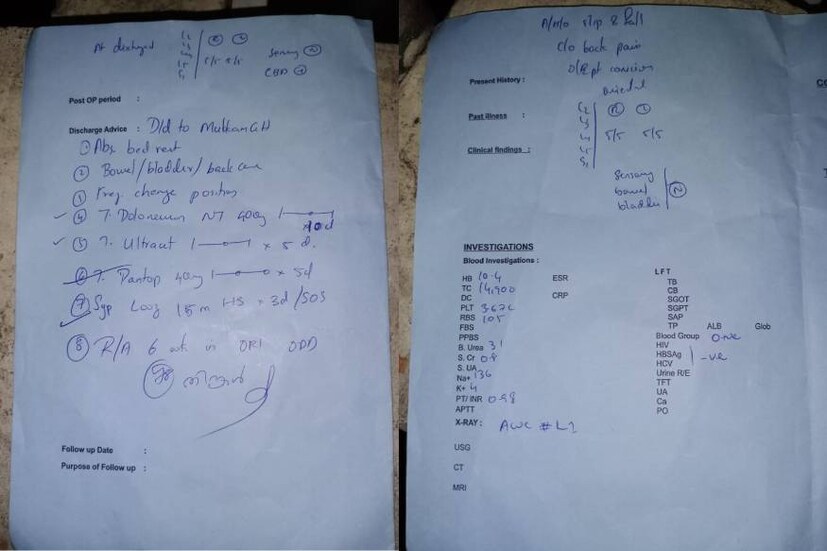 Pt discharged
5/5 5/5
Sensory N
Post OP period :
Discharge Advice : D/d to
① Abs bed rest
② Bowel/bladder/back care
③ Freq change position
④ T. NT
⑤ T. Ultracet 1—o—1 x 5 d.
⑥ T. Pantop 40mg 1—o—o x 5d
⑦ Syp Looz 15 m HS x 3d/SOS
⑧ R/A 6 wk in OPD
Follow up Date :
Purpose of Follow up :
A/H/o slip & fall
C/o back pain
O/E pt conscious
oriented
Present History :
Past illness :
L2
L3
L4 5/5 5/5
L5
S1
Clinical findings :
Sensory
bowel N
bladder
INVESTIGATIONS
Blood Investigations :
HB 10.4
TC 14,900
DC
PLT
RBS 105
FBS
PPBS
B. Urea 31
S. Cr 0.8
S. UA
Na+ 136
K+ 4
PT/ INR 0.98
APTT
ESR
CRP
LFT
TB
CB
SGOT
SGPT
SAP
TP ALB Glob
Blood Group O+ve
HIV
HBSAg -ve
HCV
Urine R/E
TFT
UA
Ca
PO
X-RAY : AWC # L1
USG
CT
MRI